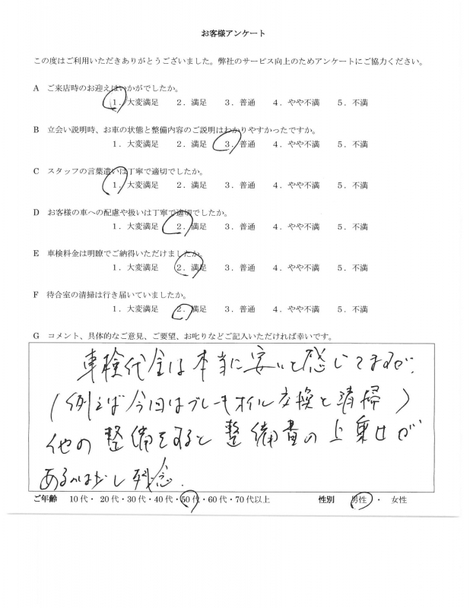 お客様アンケート
この度はご利用いただきありがとうございました。弊社のサービス向上のためアンケートにご協力ください。
A ご来店時のお迎えはいかがでしたか。
1．大変満足 2．満足 3．普通 4．やや不満 5．不満
B 立会い説明時、お車の状態と整備内容のご説明はわかりやすかったですか。
1．大変満足 2．満足 3．普通 4．やや不満 5．不満
C スタッフの言葉遣いは丁寧で適切でしたか。
1．大変満足 2．満足 3．普通 4．やや不満 5．不満
D お客様の車への配慮や扱いは丁寧で適切でしたか。
1．大変満足 2．満足 3．普通 4．やや不満 5．不満
E 車検料金は明瞭でご納得いただけましたか
1．大変満足 2．満足 3．普通 4．やや不満 5．不満
F 待合室の清掃は行き届いていましたか。
1．大変満足 2．満足 3．普通 4．やや不満 5．不満
G コメント、具体的なご意見、ご要望、お叱りなどご記入いただければ幸いです。
車検代金は本当に安いと感じてますが、
(例えば今回はブレーキオイル交換と清掃)
他の整備をすると整備費の上乗せが
あるのは少し残念.
ご年齢 10代・20代・30代・40代・50代・60代・70代以上 性別 男性 ・ 女性